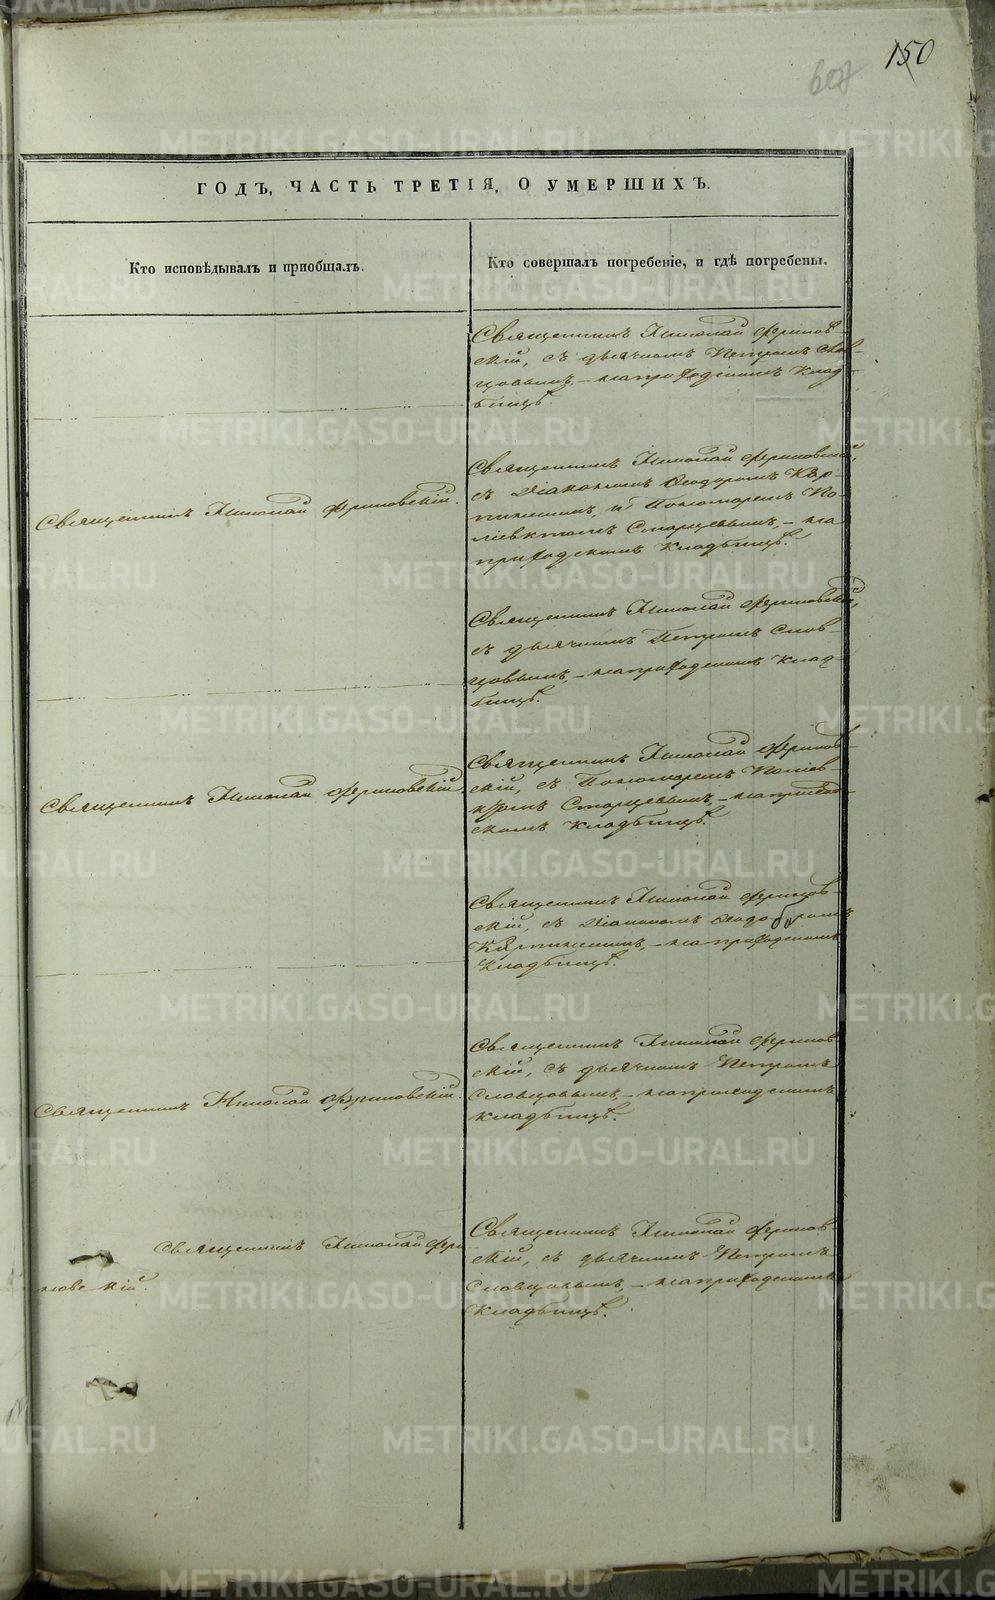 150
607
ГОДЪ, ЧАСТЬ ТРЕТІЯ, О УМЕРШИХЪ.
Кто исповѣдывалъ и пріобщалъ.
Кто совершалъ погребеніе, и гдѣ погребены.
Священникъ Николай Фриков-
скій, съ дьячкомъ Петромъ Слов-
цовымъ, – на приходскомъ клад-
бищѣ.
Священникъ Николай Фриковскій.
Священникъ Николай Фриковскій,
съ Діакономъ Ѳеодоромъ Кар-
пинскимъ, и Пономаремъ По-
ліевктомъ Старцевымъ, – на
приходскомъ кладбищѣ.
Священникъ Николай Фриковскій,
съ дьячкомъ Петромъ Слов-
цовымъ, – на приходскомъ клад-
бищѣ.
Священникъ Николай Фриковскій.
Священникъ Николай Фриков-
скій, съ Пономаремъ Поліев-
ктомъ Старцевымъ, – на приход-
скомъ кладбищѣ.
Священникъ Николай Фриков-
скій, съ Діакономъ Ѳеодоромъ
Карпинскимъ, – на приходскомъ
кладбищѣ.
Священникъ Николай Фриковскій.
Священникъ Николай Фриков-
скій, съ дьячкомъ Петромъ
Словцовымъ, – на приходскомъ
кладбищѣ.
Священникъ Николай Фри-
ковскій.
Священникъ Николай Фриков-
скій, съ дьячкомъ Петромъ
Словцовымъ, – на приходскомъ
кладбищѣ.
METRIKI.GASO-URAL.RU